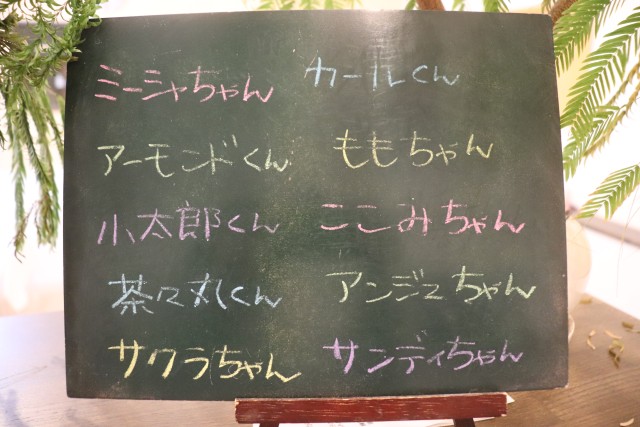 ミーシャちゃん
アーモンドくん
小太郎くん
茶々丸くん
サクラちゃん
カールくん
ももちゃん
ここみちゃん
アンジュちゃん
サンディちゃん